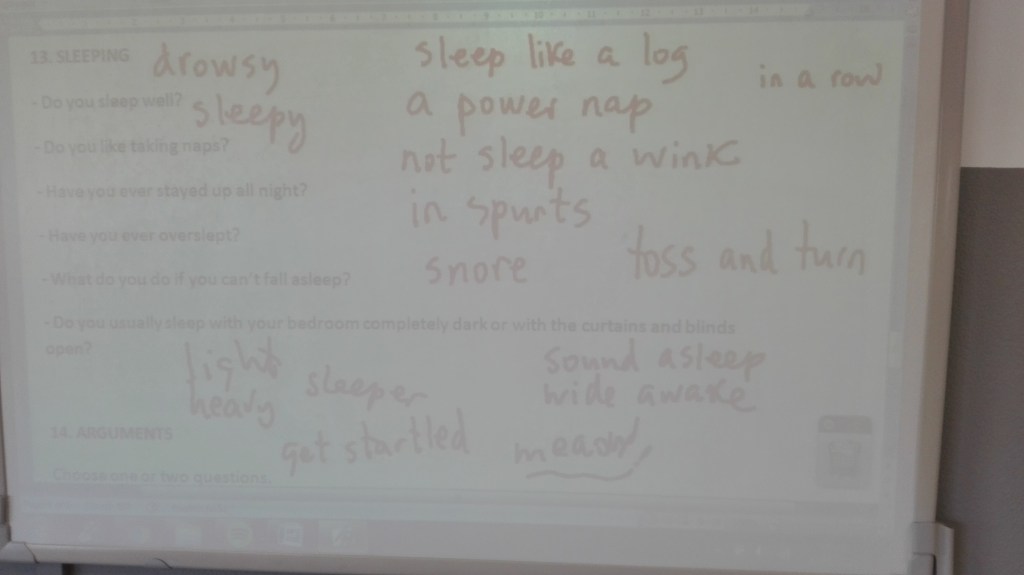 13. SLEEPING
drowsy
sleep like a log
in a row
- Do you sleep well?
sleepy
a power nap
- Do you like taking naps?
not sleep a wink
- Have you ever stayed up all night?
in spurts
- Have you ever overslept?
toss and turn
- What do you do if you can't fall asleep?
snore
- Do you usually sleep with your bedroom completely dark or with the curtains and blinds
open?
light
heavy
sleeper
sound asleep
wide awake
14. ARGUMENTS
get startled
Choose one or two questions.